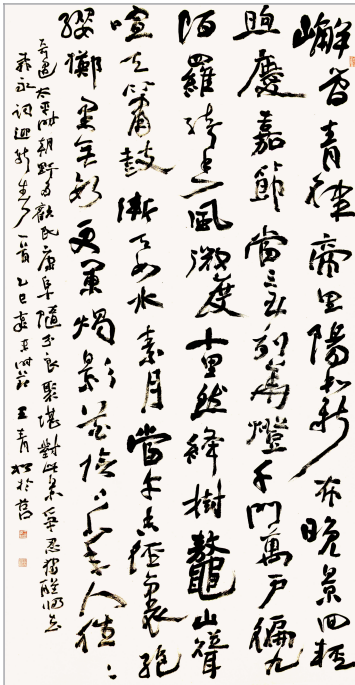 嶰管青律帝里陽和新布晚景回輕
煦慶嘉節當三五列華燈千門萬戶徧九
陌羅綺香風微度十里然絳樹鼇山聳
喧天簫鼓漸天如水素月當午香徑裏絕
纓擲果無數更闌燭影花陰下少年人往往
奇遇太平時朝野多歡民康阜隨分良聚堪對此景爭忍獨醒歸去
柳永詞迎新春一首乙巳時節王青松於